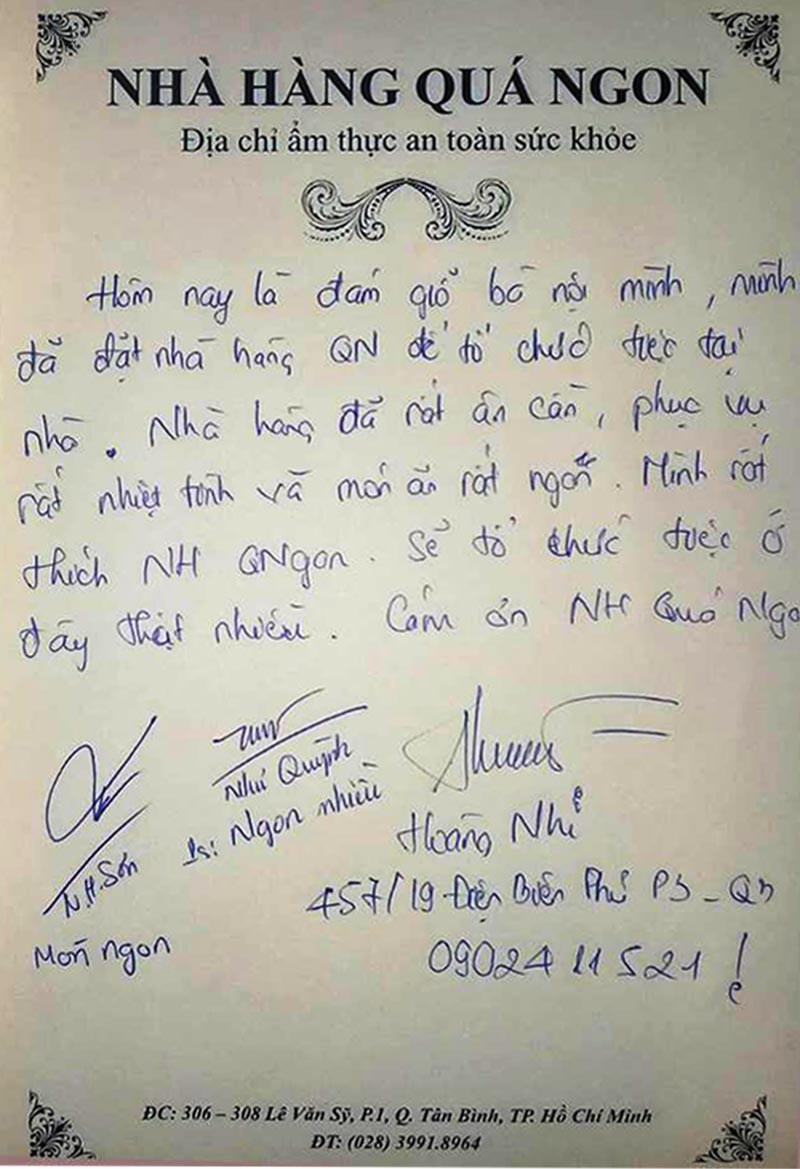 NHÀ HÀNG QUÁ NGON
Địa chỉ ẩm thực an toàn sức khỏe
Hôm nay là đám giỗ bố nội mình, mình
đã đặt nhà hàng QN để tổ chức tiệc tại
nhà. Nhà hàng đã rất ân cần, phục vụ
rất nhiệt tình và món ăn rất ngon. Mình rất
thích NH QNgon. Sẽ tổ chức tiệc ở
đây thật nhiều. Cám ơn NH Quá Ngo
Như Quỳnh
Ngon nhiều
N.H.Sơn
Món ngon
Hoàng Nhi
457/19 Điện Biên Phủ P3 - Q3
0902411521 !
ĐC: 306 – 308 Lê Văn Sỹ, P.1, Q. Tân Bình, TP. Hồ Chí Minh
ĐT: (028) 3991.8964